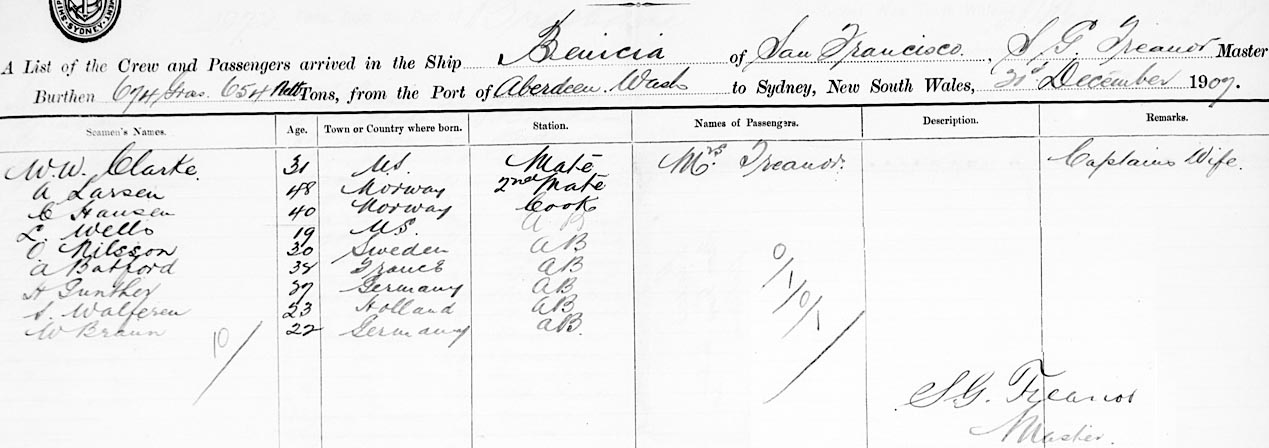 SYDNEY
A List of the Crew and Passengers arrived in the Ship Benicia of San Francisco. S G. Treanor Master
Burthen 674 Gros. 654 Nett Tons, from the Port of Aberdeen. Wash to Sydney, New South Wales, 31st December 1907.
Seamen's Names. Age. Town or Country where born. Station. Names of Passengers. Description. Remarks.
W. W. Clarke. 31 U.S. Mate Mrs Treanor. Captains Wife.
A Larsen 48 Norway 2nd Mate
C Hansen 40 Norway Cook
L. Wells 19 U.S. A B
O. Nilsson 30 Sweden A B
A Batford 38 France A B
H Gunther 37 Germany A B
S. Walferen 23 Holland A B
W Braun 22 Germany A B.
10/
0/1/0/1
S. G. Treanor
Master.